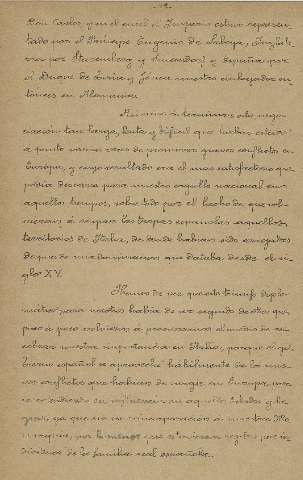 Don Carlos y en el cual el Imperio estuvo represen-
tado por el Príncipe Eugenio de Saboya, Ingla-
terra por y España por
el Duque de y nuestro embajador en-
tonces en Alemania.
terminar esta nego-
ciación tan larga, lenta y difícil que había estado
a punto varias veces de promover graves conflictos en
Europa, y cuyo resultado era el mas satisfactorio que
podia desearse para nuestro orgullo nacional en
aquellos tiempos, sobre todo por el hecho de que vol-
vieran á ocupar las tropas españolas aquellos
territorios de Italia, de donde habian sido arrojadas
despues de una dominacion que databa desde el si-
glo XV.
Hemos de ver que este triunfo diplo-
mático para nosotros habia de ser seguido de otros que
poco á poco volvieron á
nuestra importancia en Italia, porque el go-
bierno español se aprovechó hábilmente de los nue-
vos conflictos que habian de surgir en Europa, para
ir su influencia en aquellos Estados y lo-
grar, ya que no su reincorporación á nuestra Mo-
narquia, por lo menos que estuvieran regidos por in-
dividuos de la familia real española.